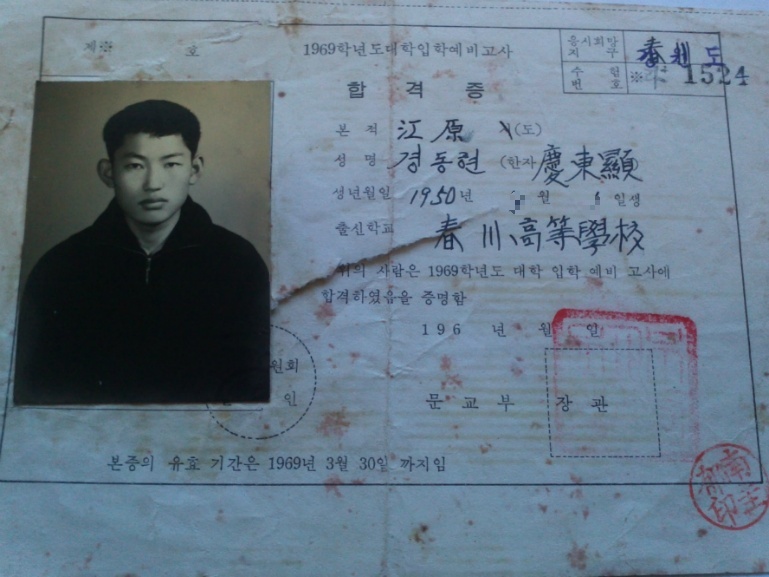 제※ 호
1969학년도대학입학예비고사
응시희망
지구
春川 도
수험
번호 ※ 1524
합격증
본적 江原 (도)
성명 경동현 (한자 慶東顯
성년월일 1950년 월 6일생
출신학교 春川高等學校
위의 사람은 1969학년도 대학 입학 예비 고사에
합격하였음을 증명함
196 년 월 일
원회
인
문교부 장관
본증의 유효 기간은 1969년 3월 30일 까지임